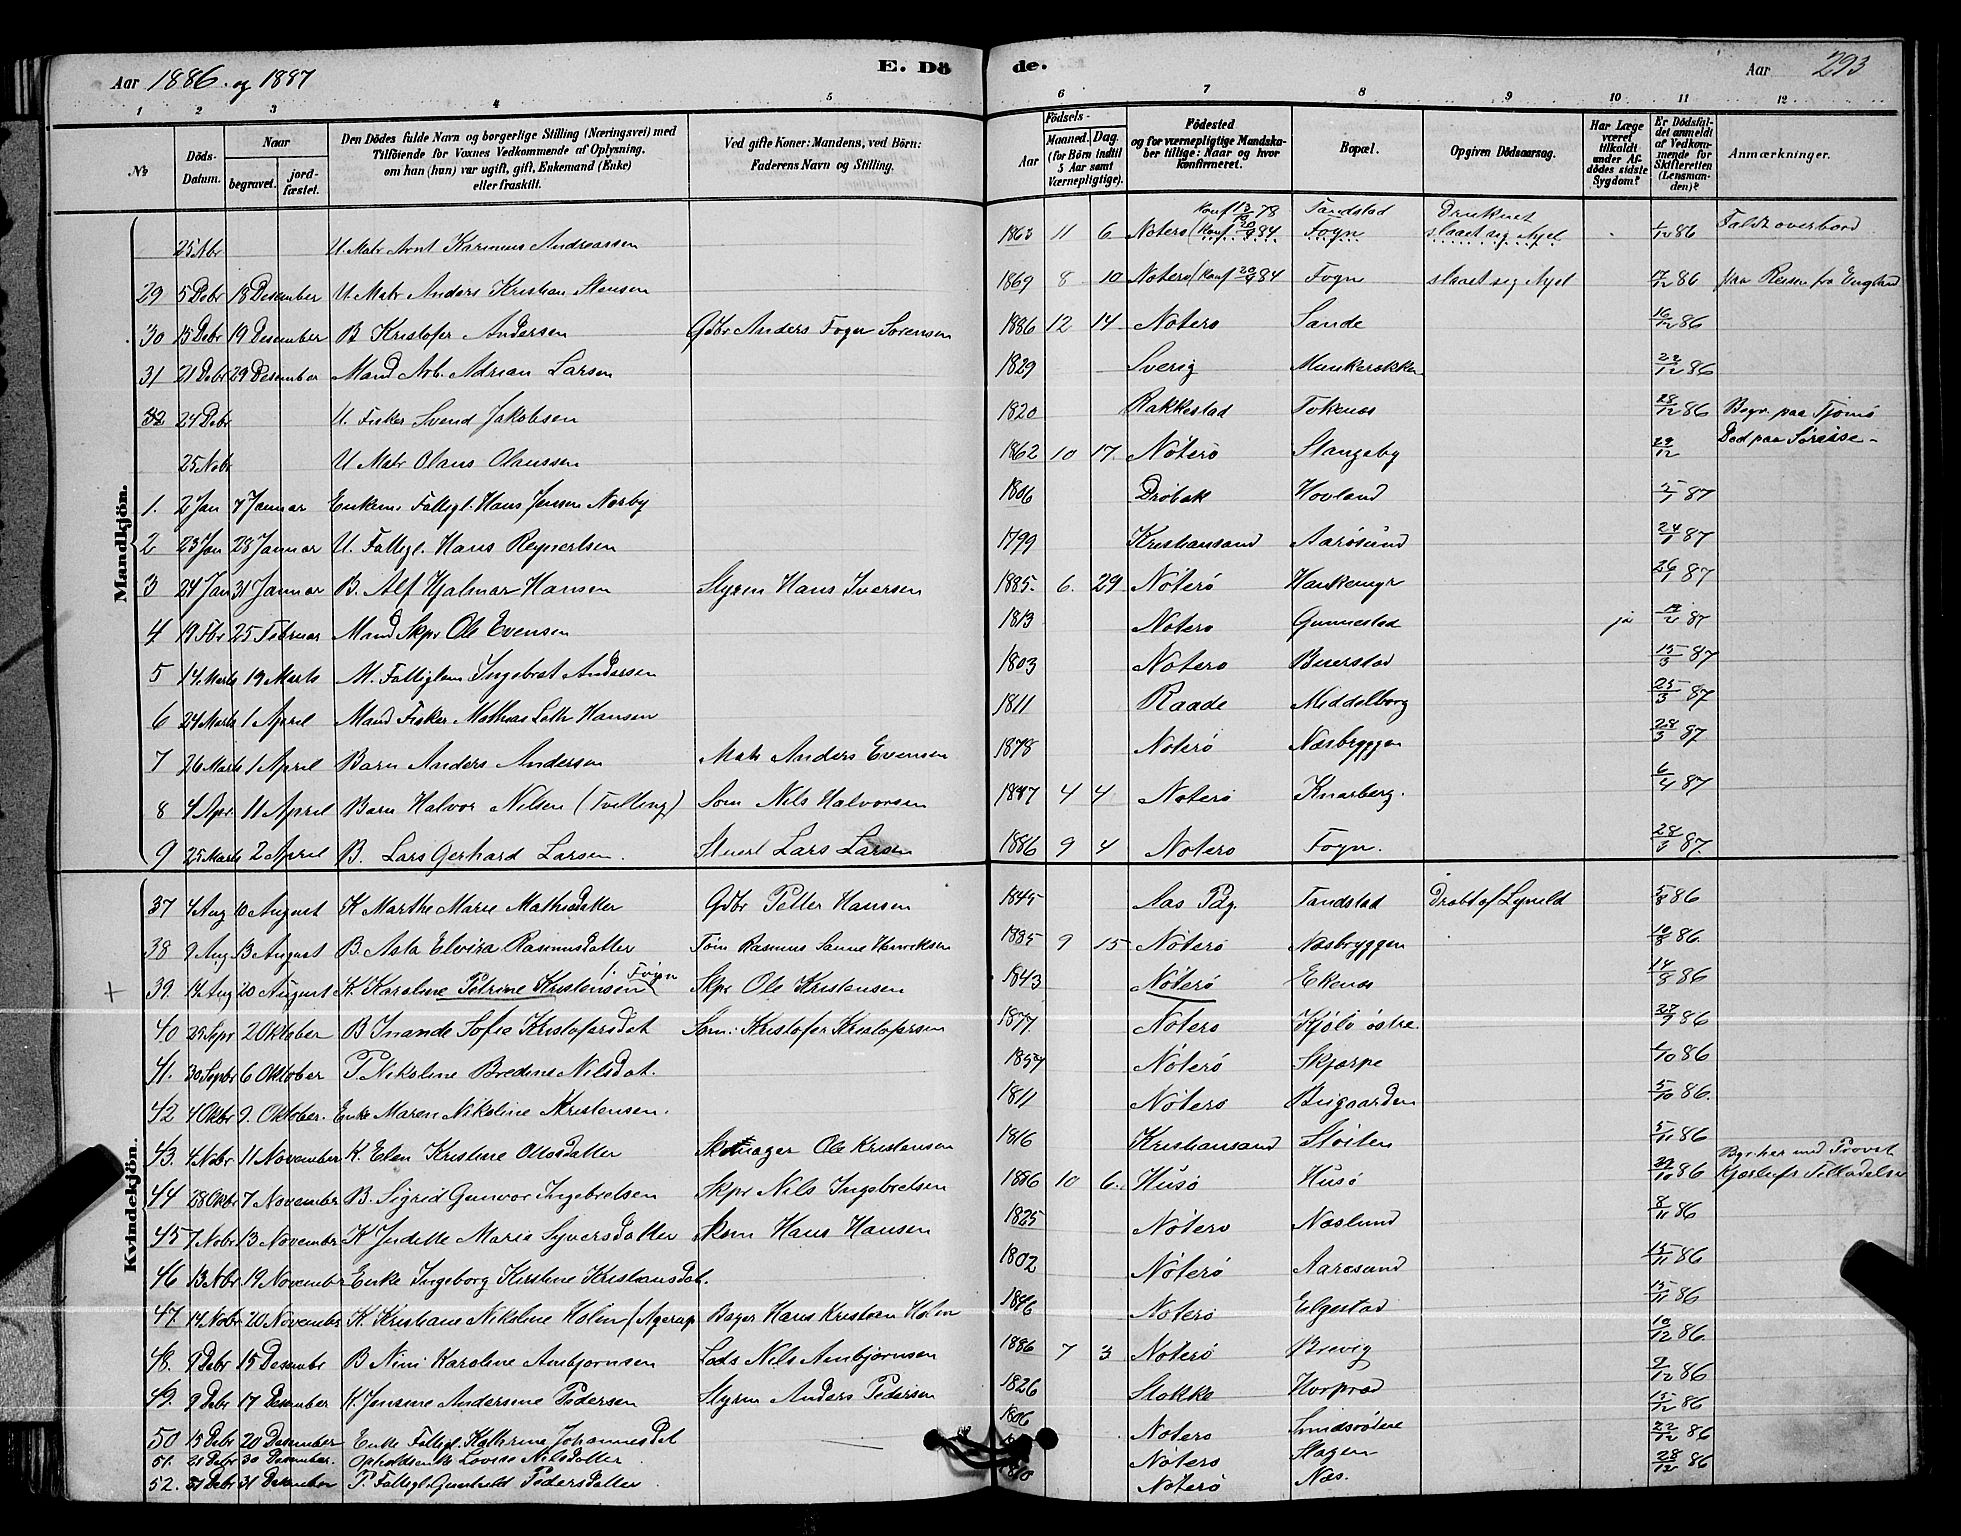 Aar 1886. og 1887 E. Dö de. Aar 293
1 2 3 4 5 6 7 8 9 10 11 12
No Döds-Datum. Naar begravet. jordfæstet. Den Dödes fulde Navn og borgerlige Stilling (Næringsvei) med Tilföiende for Voxnes Vedkommende af Oplysning. om han (hun) var ugift, gift, Enkemand (Enke) eller fraskilt. Ved gifte Koner: Mandens, ved Börn: Faderens Navn og Stilling. Födsels- Aar Maaned. Dag. (for Börn indtil 5 Aar samt Værnepligtige). Födested og for værnepligtige Mandskaber tillige: Naar og hvor konfirmeret. Bopæl. Opgiven Dödsaarsag. Har Læge været tilkaldt under Afdödes sidste Sygdom? Er Dödsfaldet anmeldt af Vedkommende for Skifteretten (Lensmanden)? Anmærkninger.
Mandkjön.
25 Nbr U Matr Arnt Karinius Andreassen 1863 11 6 Nøterø (Konf 84 Konf 78 Tandstad Fogn Druknet slaaet sig ihjel 1/12 86 Faldt overbord
29 5 Debr 18 Desember U Matr Anders Kristian Stensen 1869 8 10 Nøterø (Konf 20/9 84 Fogn slaaet sig ihjel 17/12 86 paa Reisen fra England
30 15 Debr 19 Desember B Kristofer Andersen Gdbr Anders Fogn Sørensen 1886 12 14 Nøterø Sande 16/12 86
31 21 Debr 29 Desember Mand Arb. Adrian Larsen 1829 Sverig Munkerekken 22/12 86
32 24 Debr U. Fisker Svend Jakobsen 1820 Rakkestad Tokenæs 28/12 86 Begr. paa Tjømø
25 Nobr U Matr Olaus Olaussen 1862 10 17 Nøterø Stangeby 29/12 Død paa
1. 2 Jan 7 Januar Enkem. Fattigl. Hans Jensen Norby 1806 Drøbak Hovland 5/1 87
2 23 Jan 28 Januar U. Fattigl. Hans Reynertsen 1799 Kristiansand Aarøsund 24/1 87
3 24 Jan 31 Januar B. Alf Hjalmar Hansen Styrm Hans Iversen 1885. 6. 29 Nøterø Hankemyr 26/1 87
4 19 Fbr 25 Februar Mand Skpr Ole Evensen 1813 Nøterø Gunnestad ja 19/2 87
5 14 Marts 19 Marts M. Fattiglem Ingebret Andersen 1803 Nøterø Buerstad 15/3 87
6 24 Marts 1 April Mand Fisker Mathias Seth Hansen 1811 Raade Middelborg 25/3 87
7 26 Marts 1 April Barn Anders Andersen Matr Anders Evensen 1878 Nøterø Næsbryggen 28/3 87
8 4 Apr 11 April Barn Halvor Nilsen (Tvilling) Søm Nils Halvorsen 1887 4 4 Nøterø Knarberg. 6/4 87
9 25 Marts 2 April B. Lars Gerhard Larsen. Stuert Lars Larsen 1886 9 4 Nøterø Fogn. 28/3 87.
Kvindekjön.
37 4 Aug 10 August K Marthe Marie Mathisdatter Gdbr Petter Hansen 1845 Aas Pdg. Tandstad Dræbt af Lynild 5/8 86
38 9 Aug 13 August B. Asta Elvira Rasmusdatter Tøm Rasmus Sanne Henriksen 1885 9 15 Nøterø Næsbryggen 10/8 86.
39. 14 Aug 20 August K. Karoline Petrine Kristensen f. Foien Skpr Ole Kristensen 1843 Nøterø Ekenæs 14/8 86
40 25 Sepr 2 Oktober B Inande Sofie Kristofersdat Søm: Kristofer Kristofersen 1877 Nøterø Kjøle østre. 27/9 86
41. 30 Sepbr 6 Oktober P. Nikoline Bredine Nilsdat. 1857 Nøterø Skjærpe 1/10 86
42 4 Oktbr 9. Oktober. Enke Maren Nikoline Kristensen. 1811 Nøterø Bugaarden 5/10 86.
43. 4 Nobr 11 November K. Elen Kristine Ottosdatter Skomager Ole Kristensen 1816 Kristiansand Støiten 5/11 86
44 28 Oktbr 7 November B. Sigrid Gunvor Ingebretsen Skpr Nils Ingebretsen 1886 10 6. Husø Husø 30/10 86 Begr. her med Provst Kjærlufs Tilladelse
45 7 Nobr 13 November K Indette Marie Syversdatter Skom Hans Hansen 1825 Nøterø Næslund 8/11 86
46 13 Nobr 19 November Enke Ingeborg Kirstine Kristiansdat. 1802 Nøterø Aarøsund 15/11 86
47. 14 Nobr 20 Novembr K. Kristiane Nikoline Holm (Agerup Bager Hans Kristian Holm 1846 Nøterø Elgestad 15/11 86
48. 9 Debr 15 Desembr B Nini Karoline Ambjørnsen Lods Nils Ambjørnsen 1886 7 3 Nøterø Brevig 10/12 86.
49. 9 Debr 17 Desember K. Jensine Andersine Pedersen Styrm Anders Pedersen 1826 Stokke 9/12 86
50 13 Debr 20 Desember Enke Fattigl. Kathrine Johannesdat 1806 Nøterø 15/12 86
51. 21 Debr 30 Desember. Lovise Nilsdatter Nøterø Stagen 22/12 86
52. 31 Debr 31 Desember P. Fattigl. Gunhild Pedersdatter 1810 Nøterø Næs. 28/12 86